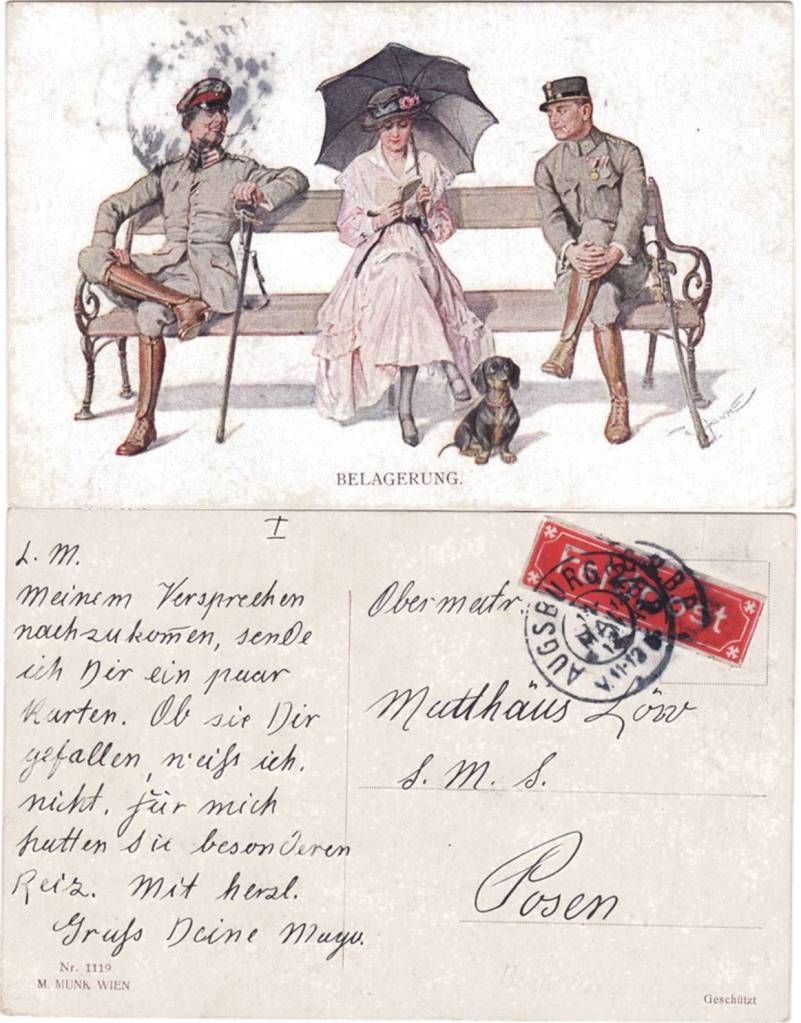 BELAGERUNG.
I
L. M.
Meinem Versprechen
nachzukom̅en, sende
ich Dir ein paar
Karten. Ob sie Dir
gefallen, weiß ich
nicht, für mich
hatten sie besonderen
Reiz. Mit herzl.
Gruß Deine Maya.
Nr. 1119
M. MUNK WIEN
Feldpost
AUGSBURG
V. 11-12
Obermatr.
Matthäus Löw
S. M. S.
Posen
Geschützt